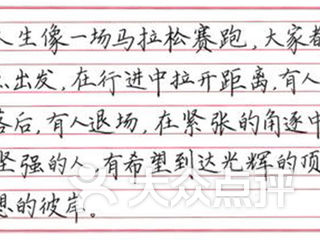 人生像一场马拉松赛跑,大家都
出发,在行进中拉开距离,有人
落后,有人退场,在紧张的角逐中
坚强的人,有希望到达光辉的顶
想的彼岸。
大众点评